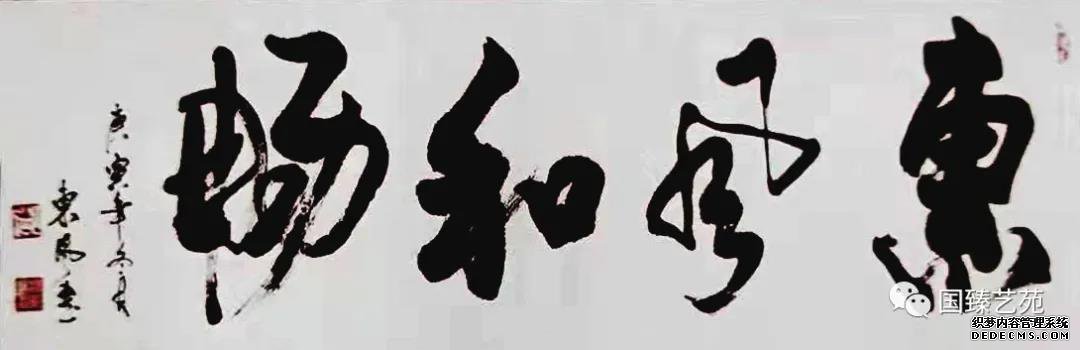 惠风和畅
庚寅年冬月
東
国臻艺苑
织梦内容管理系统
DEDECMS.COM